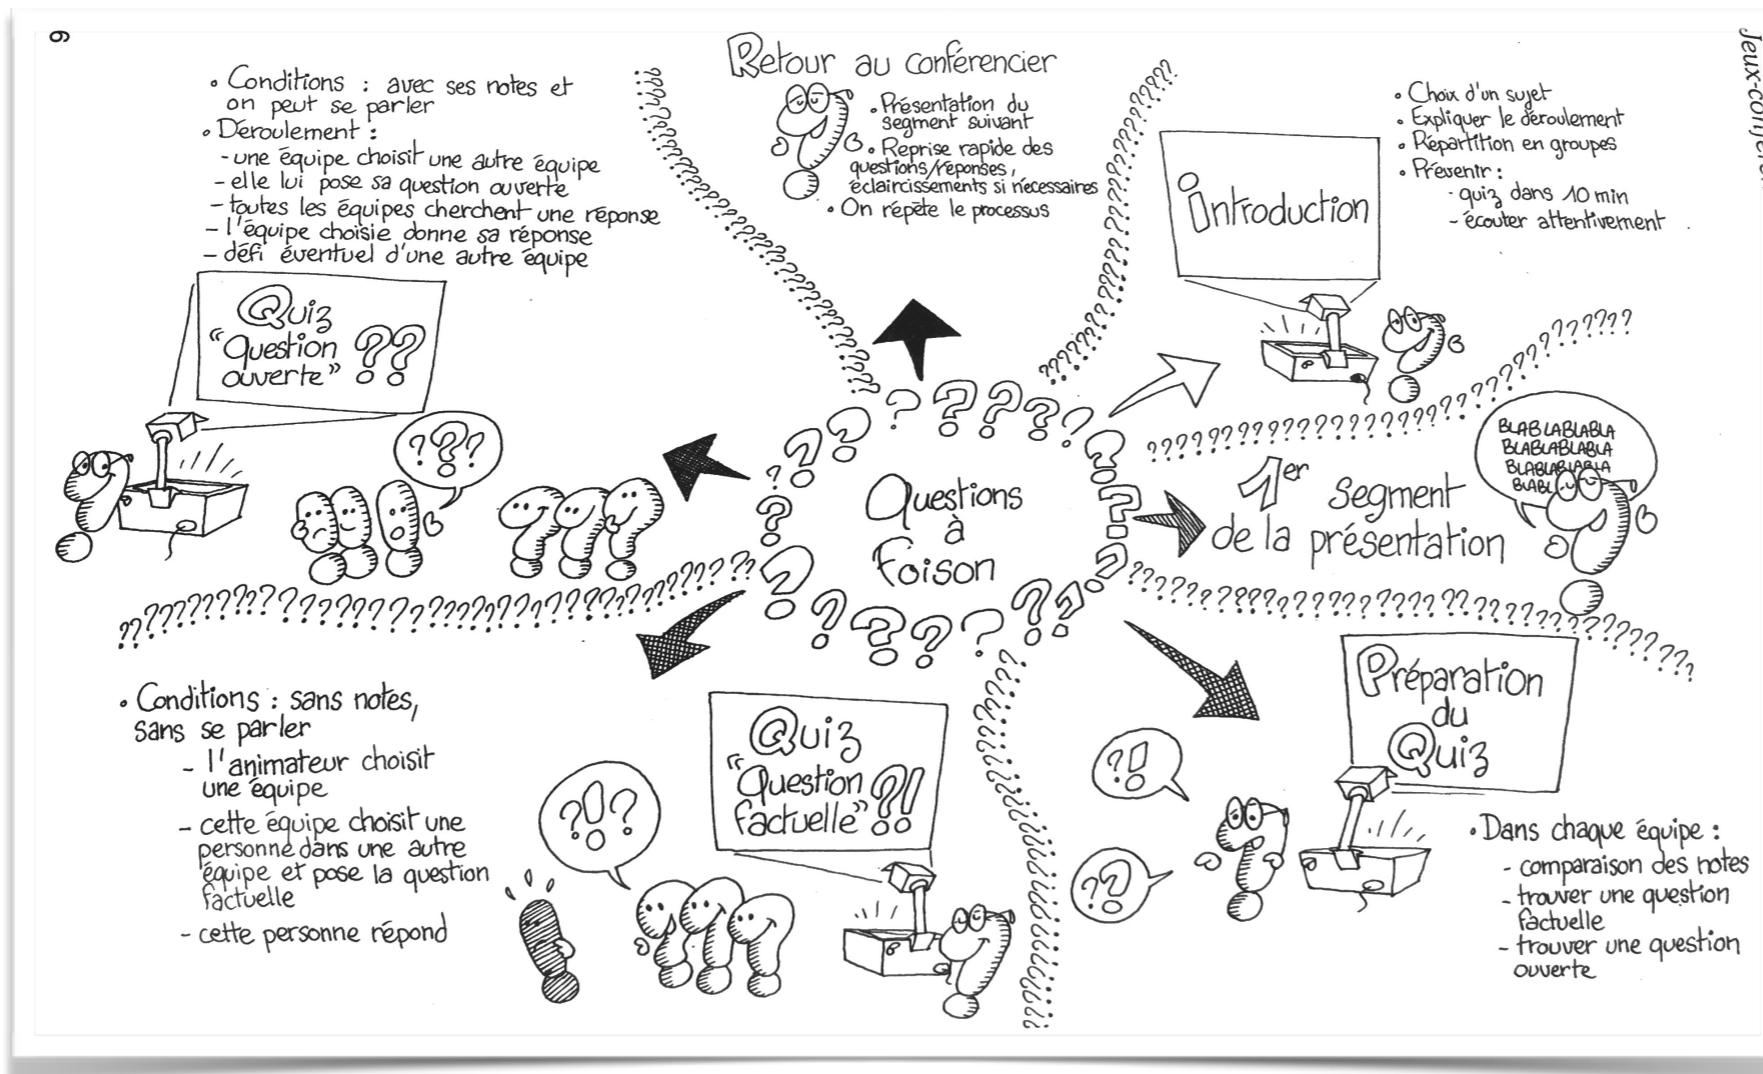 6
Jeux-confér
Questions
à
Foison
Introduction
• Choix d'un sujet
• Expliquer le déroulement
• Répartition en groupes
• Prévenir :
- quiz dans 10 min
- écouter attentivement
1er segment
de la présentation
BLABLABLABLA
BLABLABLABLA
BLABLABLABLA
BLABL
Préparation
du
Quiz
?!
??
• Dans chaque équipe :
- comparaison des notes
- trouver une question
factuelle
- trouver une question
ouverte
Quiz
"Question
factuelle" ?!
?!?
• Conditions : sans notes,
sans se parler
- l'animateur choisit
une équipe
- cette équipe choisit une
personne dans une autre
équipe et pose la question
factuelle
- cette personne répond
Quiz
"Question
ouverte" ??
???
• Conditions : avec ses notes et
on peut se parler
• Déroulement :
- une équipe choisit une autre équipe
- elle lui pose sa question ouverte
- toutes les équipes cherchent une réponse
- l'équipe choisie donne sa réponse
- défi éventuel d'une autre équipe
Retour au conférencier
• Présentation du
segment suivant
• Reprise rapide des
questions/réponses,
éclaircissements si nécessaires
• On répète le processus